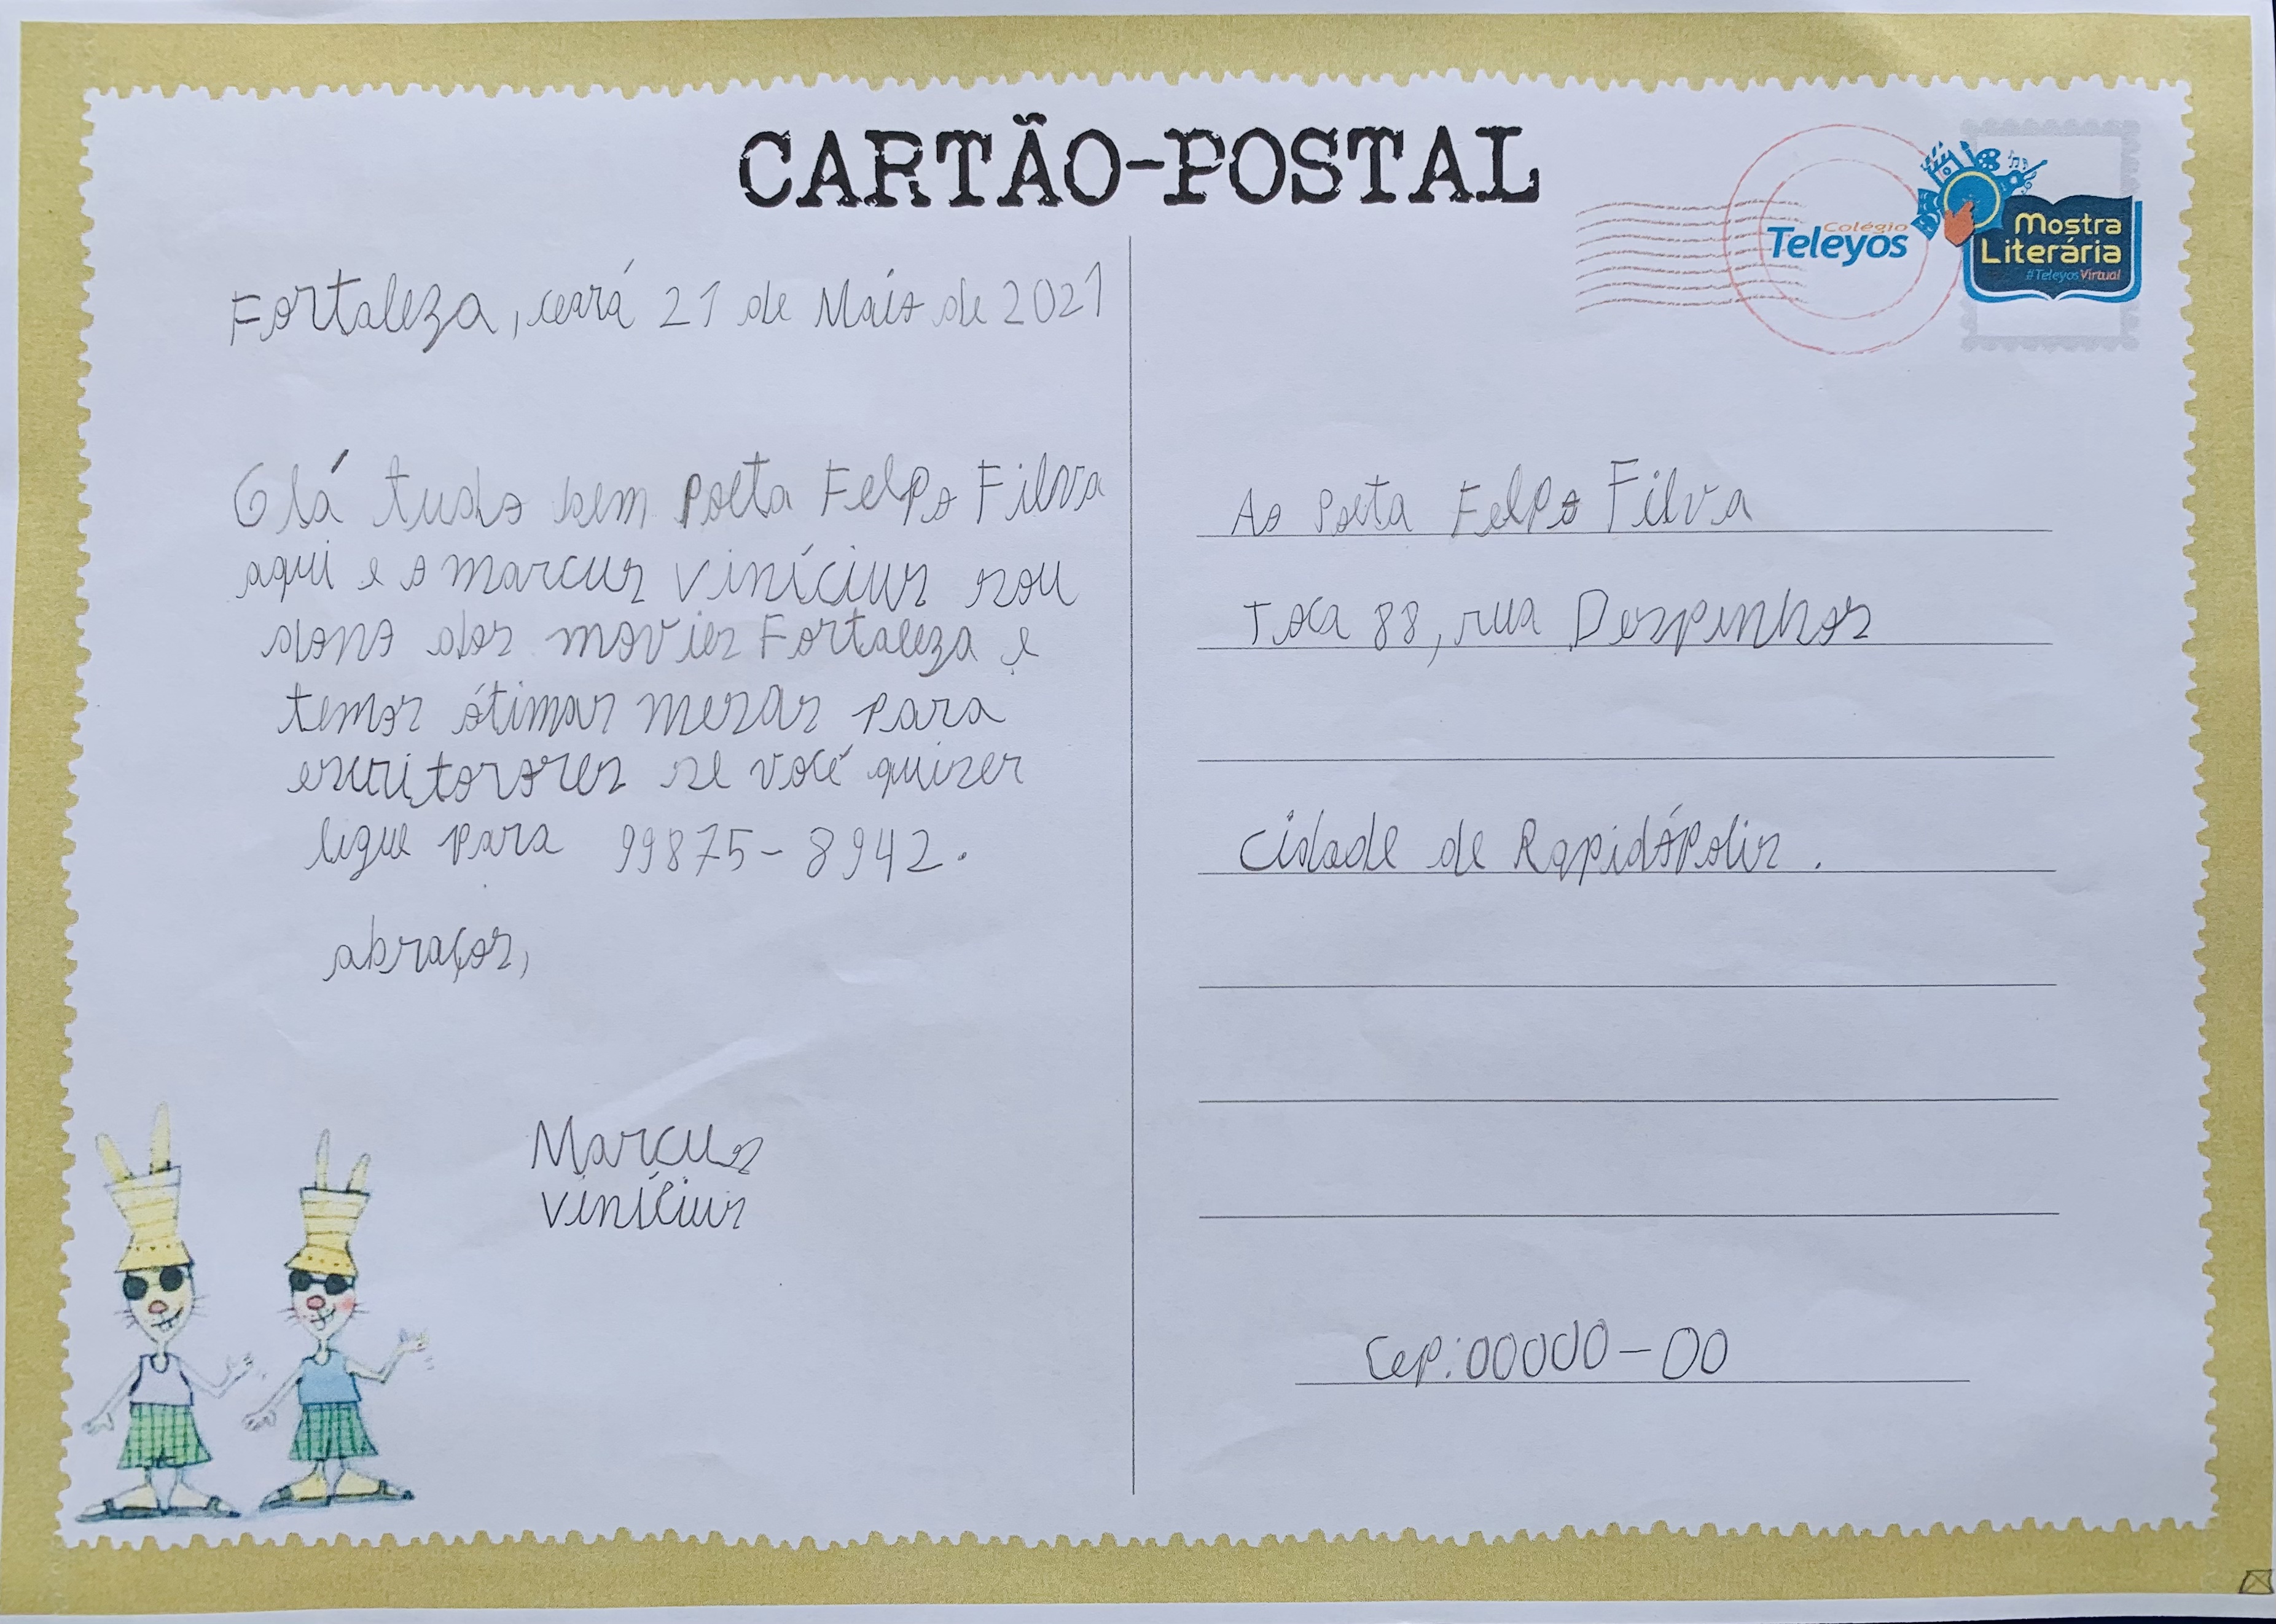 CARTÃO-POSTAL
Colégio
Teleyos
Mostra
Literária
#TeleyosVirtual
Fortaleza, ceará 21 de Maio de 2021
Olá tudo bem Poeta Felpo Filva
aqui e o marcus vinícius sou
dono dos movies Fortaleza e
temos ótimas mesas para
escritorores se você quiser
ligue para 99875-8942.
abraços,
Marcus
vinícius
Ao Poeta Felpo Filva
Toca 88, rua Despinhos
Cidade de Rapidópolis.
Cep: 00000-00